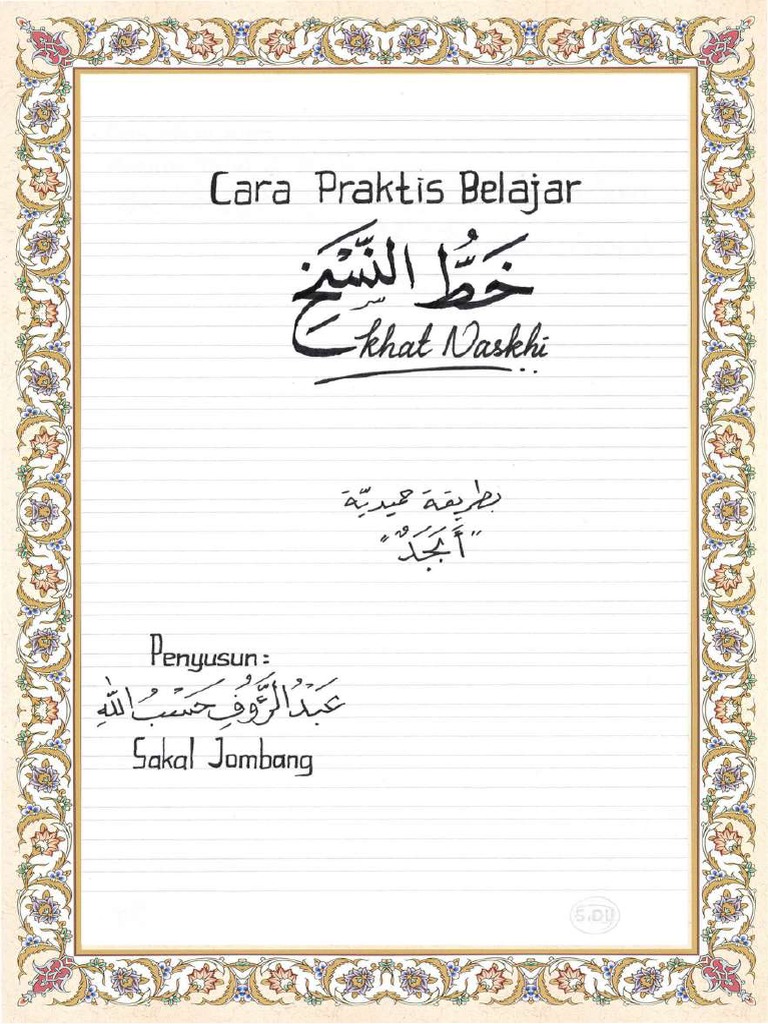 Cara Praktis Belajar
خَطُّ النَّسْخِ
khat Naskhi
بطريقة حميديّة
"أَبْجَدٌ"
Penyusun:
عَبْدُ الرَّؤُوْفِ حَسْبُ اللّٰهِ
Sakal Jombang